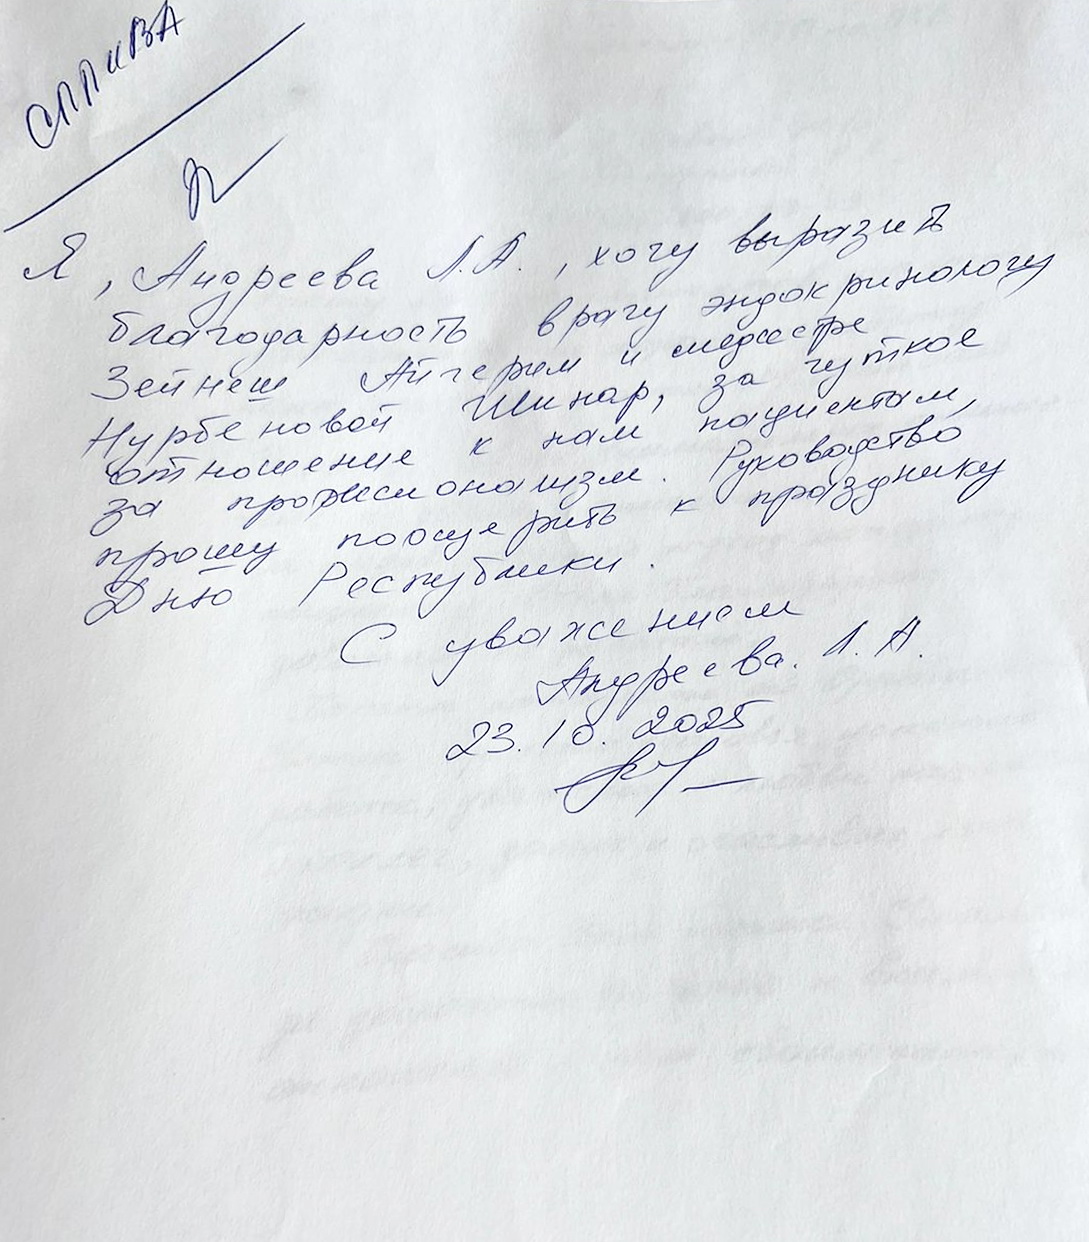 СППиВА
Я, Андреева Л.А., хочу выразить
благодарность врачу эндокринологу
Зейнеш Айгерим и медсестре
Нурбеновой Шинар, за чуткое
отношение к нам пациентам,
за профессионализм. Руководство
прошу поощерить к празднику
Дню Республики.
С уважением
Андреева. Л.А.
23.10.2025